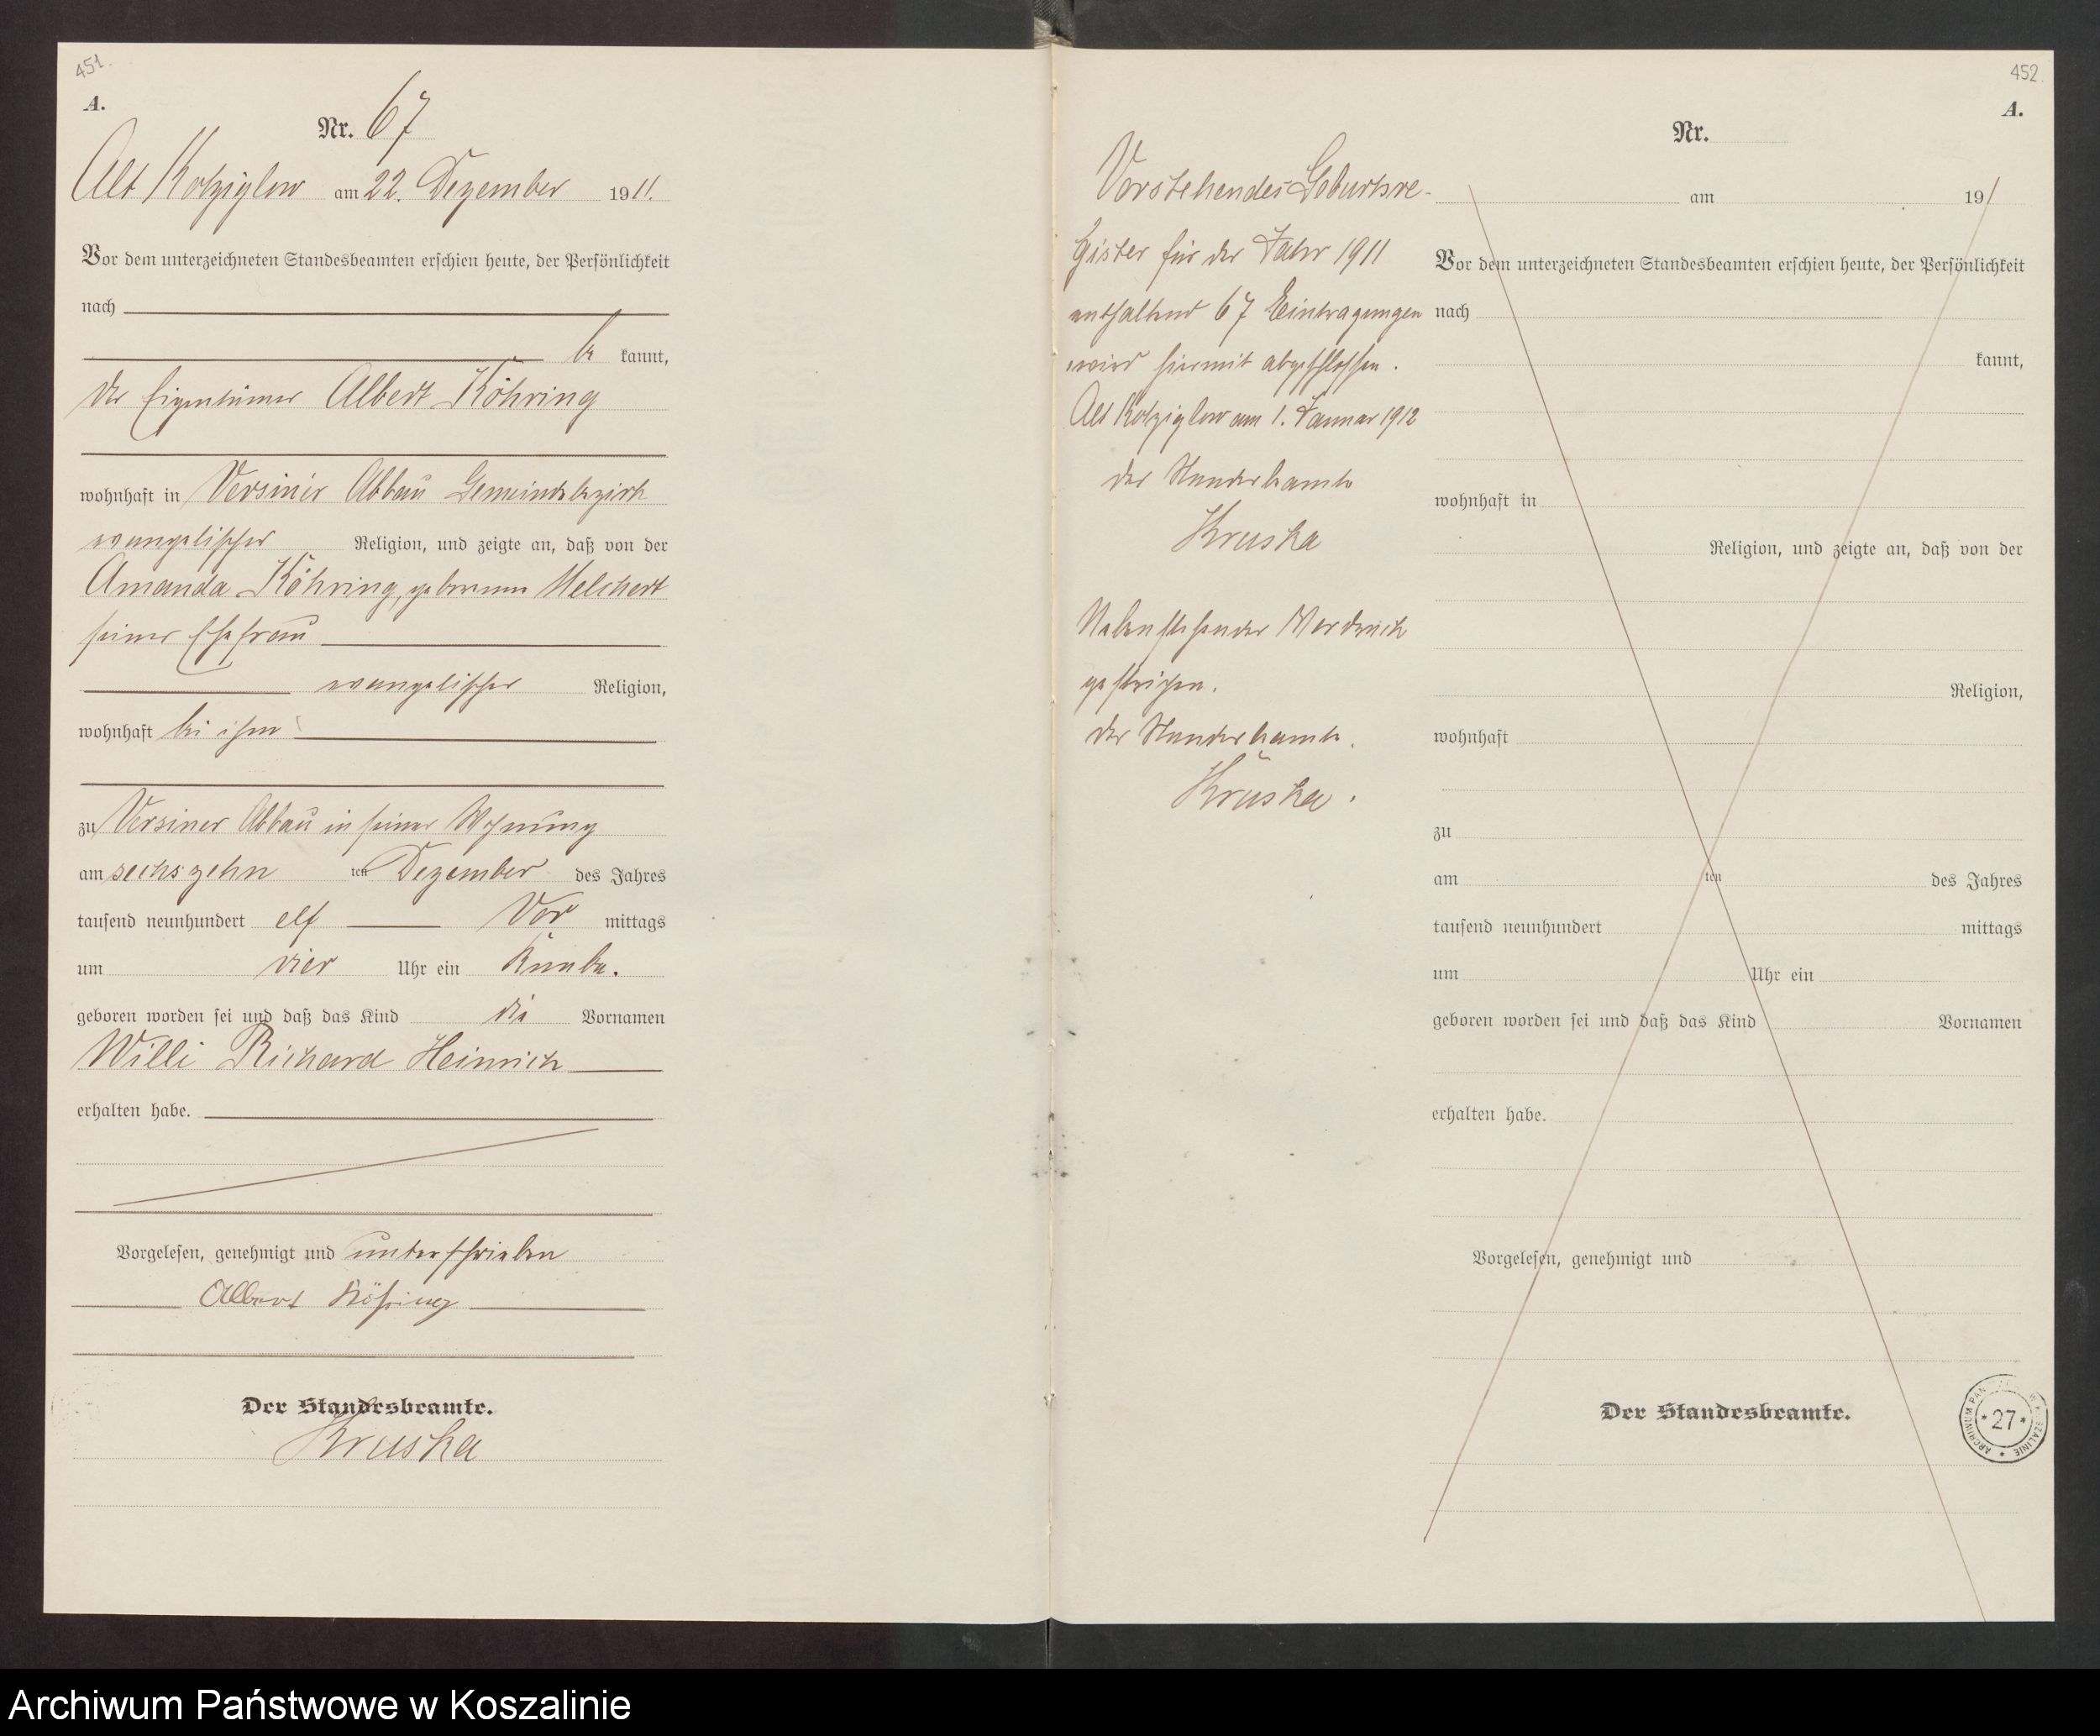 451.
A.
Nr. 67
Alt Kolziglow am 22. Dezember 1911.
Vor dem unterzeichneten Standesbeamten erschien heute, der Persönlichkeit
nach
be kannt,
der Eigentümer Albert Köhring
wohnhaft in Versiner Abbau Gemeindebezirk
evangelischer Religion, und zeigte an, daß von der
Amanda Köhring, geborenen Melchert
seiner Ehefrau
evangelischer Religion,
wohnhaft bei ihm
zu Versiner Abbau in seiner Wohnung
am sechszehn ten Dezember des Jahres
tausend neunhundert elf Vor mittags
um vier Uhr ein Knabe.
geboren worden sei und daß das Kind die Vornamen
Willi Richard Heinrich
erhalten habe.
Vorgelesen, genehmigt und unterschrieben
Albert Köhring
Der Standesbeamte.
Kruska
452
A.
Nr.
Vorstehendes Geburtsre-
gister für das Jahr 1911
enthaltend 67 Eintragungen
wird hiermit abgeschlossen.
Alt Kolziglow am 1. Januar 1912
der Standesbeamte
Kruska
Nebenstehender Vordruck
gestrichen.
der Standesbeamte.
Kruska.
am 19
Vor dem unterzeichneten Standesbeamten erschien heute, der Persönlichkeit
nach
kannt,
wohnhaft in
Religion, und zeigte an, daß von der
Religion,
wohnhaft
zu
am ten des Jahres
tausend neunhundert mittags
um Uhr ein
geboren worden sei und daß das Kind Vornamen
erhalten habe.
Vorgelesen, genehmigt und
Der Standesbeamte.
27
Archiwum Państwowe w Koszalinie